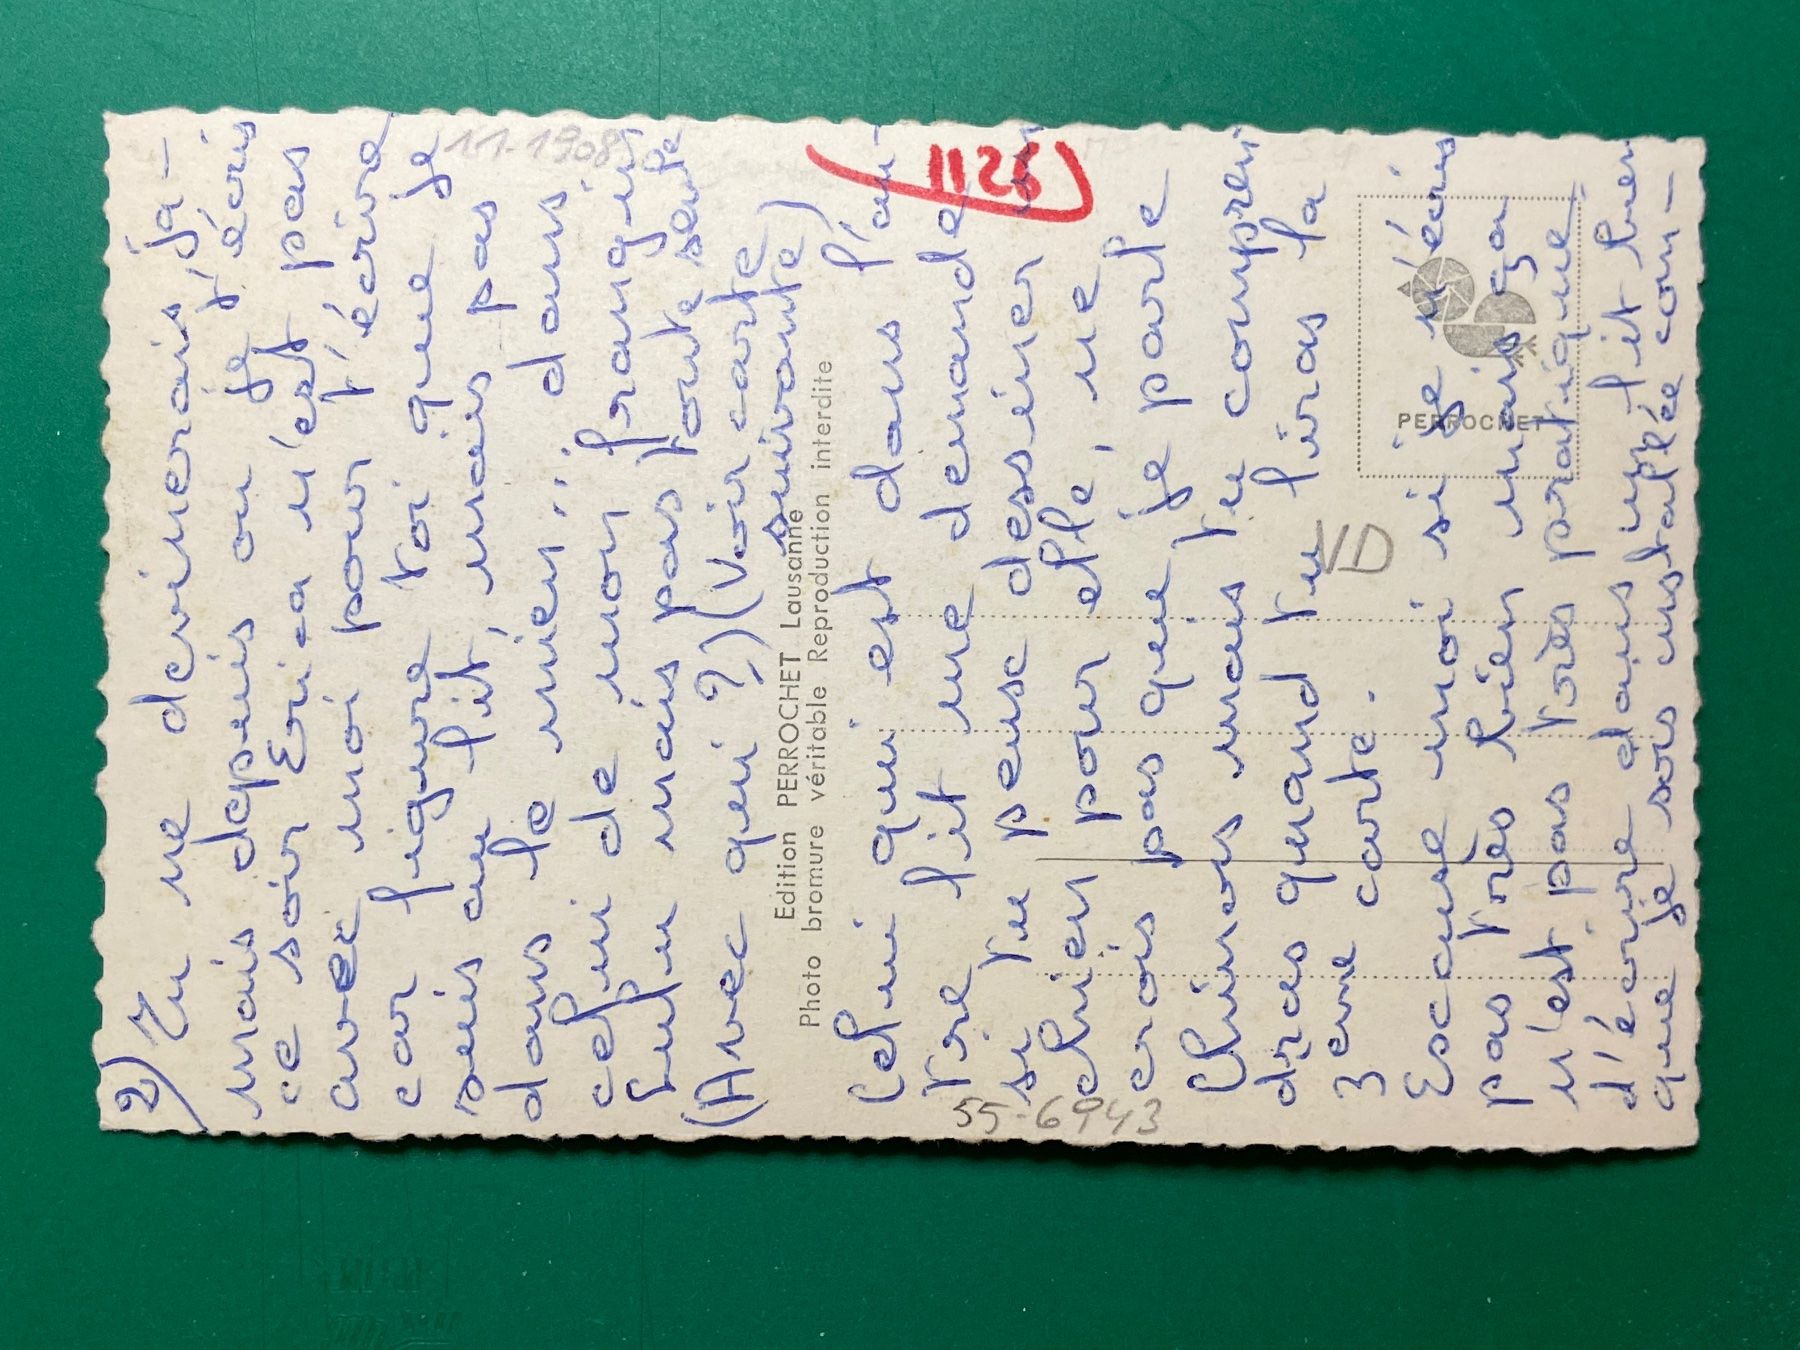 2) Tu ne devinerais, ja-
mais depuis où je t'écris
ce soir Erica n'est pas
avec moi pour t'écrire
car figure toi que je
suis au lit, mais pas
dans le mien... dans
celui de mon frangin
Lulu mais pas toute seule
(Avec qui ?) (Voir carte
suivante)
Edition PERROCHET Lausanne
Photo bromure véritable Reproduction interdite
Celui qui est dans l'au-
tre lit me demande
si tu peux dessiner un
chien pour elle, ne
crois pas que je parle
Chinois mais tu compren
dras quand tu liras la
3 eme carte.
Escuse moi si je n'écris
pas très bien mais ça
n'est pas très pratique
d'écrire dans un lit bien
que je sois installée com-
1125
11-1908
55-6943
VD
PERROCHET